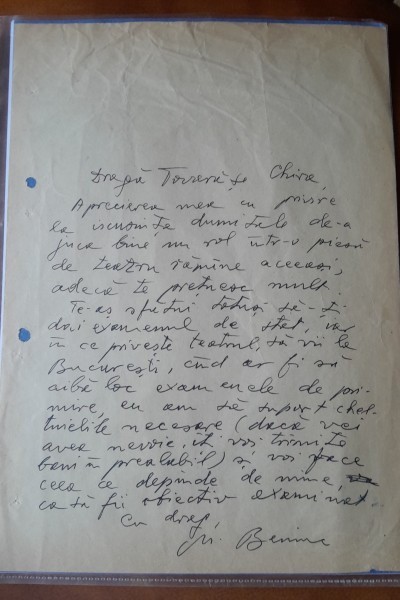 Dragă Tovarășe Chira,
Aprecierea mea cu privire
la iscusința dumitale de-a
juca bine un rol într-o piesă
de teatru rămîne aceeași,
adecă te prețuesc mult.
Te-aș sfătui totuși să-ți
dai examenul de stat, iar
în ce privește teatrul, să vii la
București, cînd ar fi să
aibă loc examenele de pri-
mire, eu am să suport chel-
tuielile necesare (dacă vei
avea nevoie, îți voi trimite
bani în prealabil) și voi face
ceea ce depinde de mine,
ca să fii obiectiv examinat.
Cu drag,